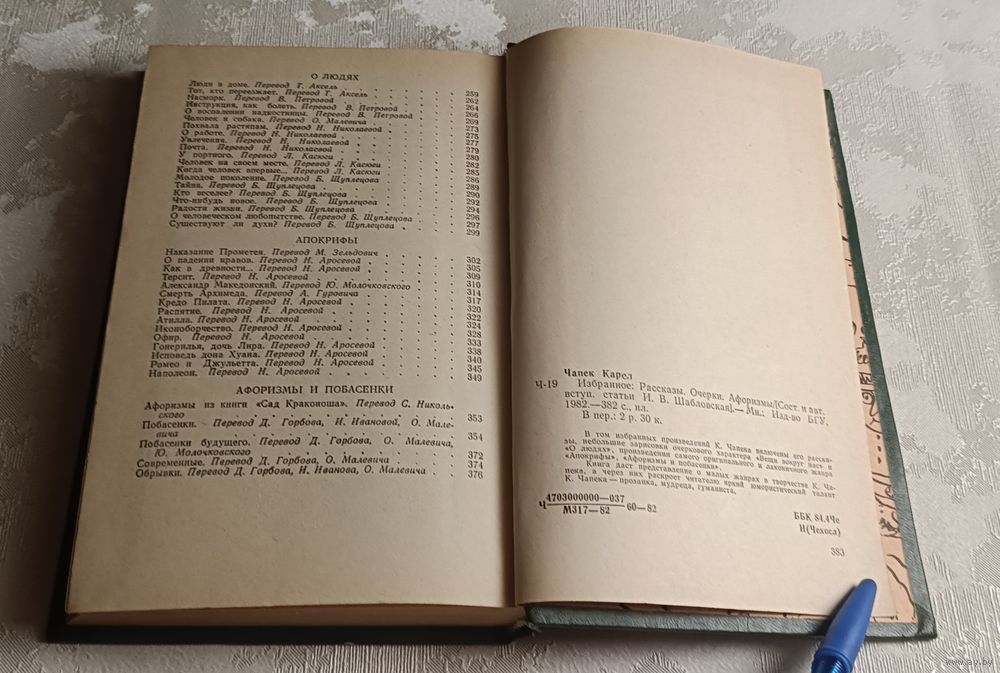 О ЛЮДЯХ
Люди в доме. Перевод Т. Аксель 259
Тот, кто переезжает. Перевод Т. Аксель 262
Насморк. Перевод В. Петровой 264
Инструкция, как болеть. Перевод В. Петровой 266
О воспалении надкостницы. Перевод В. Петровой 269
Человек и собака. Перевод О. Малевича 273
Похвала растяпам. Перевод Н. Николаевой 275
О работе. Перевод Н. Николаевой 277
Увлечения. Перевод Н. Николаевой 279
Почта. Перевод Н. Николаевой 280
У портного. Перевод Л. Касюги 282
Человек на своем месте. Перевод Л. Касюги 285
Когда человек впервые... Перевод Л. Касюги 286
Молодое поколение. Перевод Б. Щуплецова 289
Тайна. Перевод Б. Щуплецова 290
Кто веселее? Перевод Б. Щуплецова 292
Что-нибудь новое. Перевод Б. Щуплецова 294
Радости жизни. Перевод Б. Щуплецова 296
О человеческом любопытстве. Перевод Б. Щуплецова 297
Существуют ли духи? Перевод Б. Щуплецова 299
АПОКРИФЫ
Наказание Прометея. Перевод М. Зельдович 302
О падении нравов. Перевод Н. Аросевой 305
Как в древности... Перевод Н. Аросевой 309
Терсит. Перевод Н. Аросевой 310
Александр Македонский. Перевод Ю. Молочковского 314
Смерть Архимеда. Перевод А. Гуровича 317
Кредо Пилата. Перевод Н. Аросевой 320
Распятие. Перевод Н. Аросевой 322
Атилла. Перевод Н. Аросевой 324
Иконоборчество. Перевод Н. Аросевой 328
Офир. Перевод Н. Аросевой 333
Гонерилья, дочь Лира. Перевод Н. Аросевой 338
Исповедь дона Хуана. Перевод Н. Аросевой 340
Ромео и Джульетта. Перевод Н. Аросевой 345
Наполеон. Перевод Н. Аросевой 349
АФОРИЗМЫ И ПОБАСЕНКИ
Афоризмы из книги «Сад Краконоша». Перевод С. Николь-
ского 353
Побасенки. Перевод Д. Горбова, Н. Ивановой, О. Мале-
вича 354
Побасенки будущего. Перевод Д. Горбова, О. Малевича,
Ю. Молочковского 372
Современные. Перевод Д. Горбова, О. Малевича 374
Обрывки. Перевод Д. Горбова, Н. Иванова, О. Малевича 376
Чапек Карел
Ч-19 Избранное: Рассказы. Очерки. Афоризмы/[Сост. и авт.
вступ. статьи И. В. Шабловская].— Мн.: Изд-во БГУ,
1982.—382 с., ил.
В пер.: 2 р. 30 к.
В том избранных произведений К. Чапека включены его расска-
зы, небольшие зарисовки очеркового характера «Вещи вокруг нас» и
«О людях», произведения самого оригинального и лаконичного жанра
«Апокрифы», «Афоризмы и побасенки».
Книга даст представление о малых жанрах в творчестве К. Ча-
пека, а через них раскроет читателю яркий юмористический талант
К. Чапека — прозаика, мудреца, гуманиста.
Ч 4703000000—037
М317—82 60—82
ББК 84.4Че
И(Чехосл)
383
www.ay.by